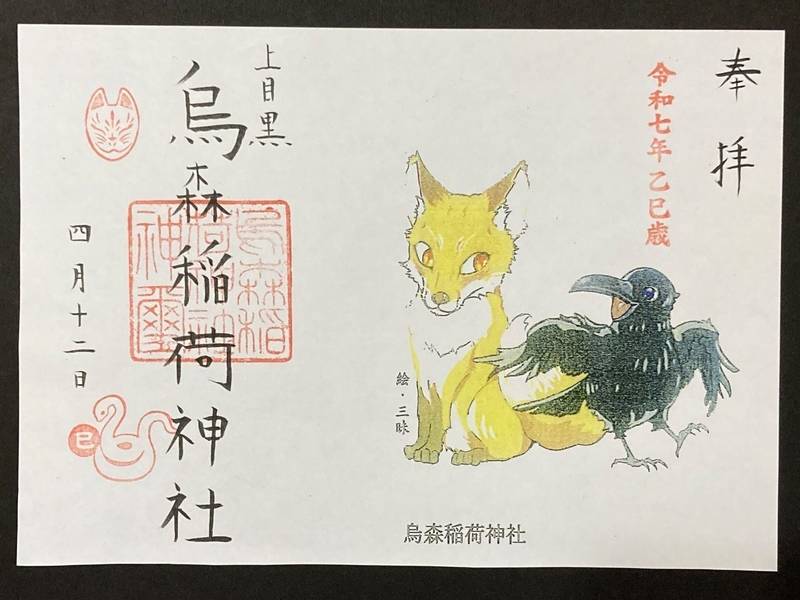 奉拝
令和七年乙巳歳
絵・三昧
烏森稲荷神社
上目黒
烏森稲荷神社
烏森稲荷神社神璽
四月十二日
巳